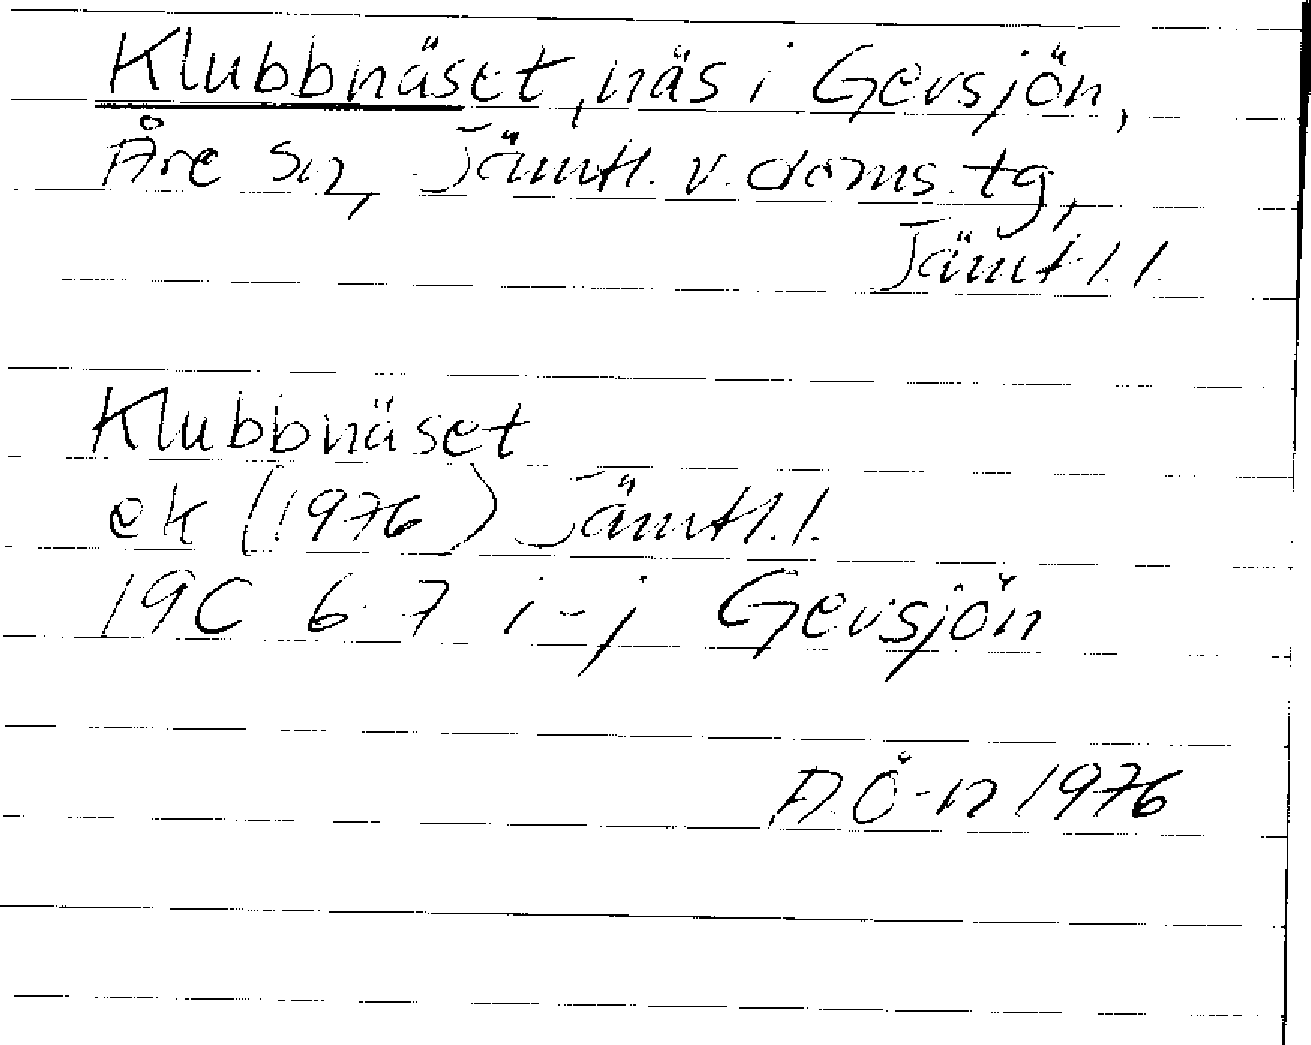 Klubbnäset, näs i Gevsjön,
Åre sn, Jämtl. v. doms. tg,
Jämtl. l.
Klubbnäset
ek (1976) Jämtl. l.
19C 6-7 i-j Gevsjön
A.Ö-n 1976